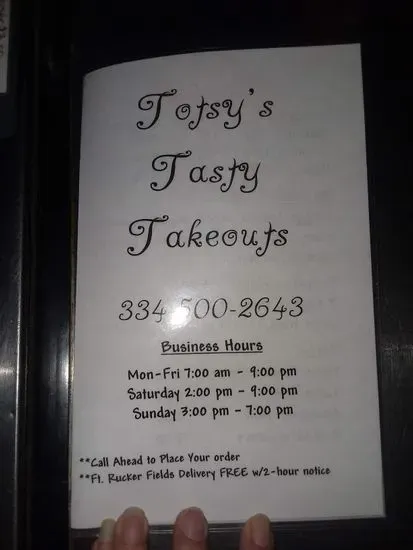 Totsy's
Tasty
Takeouts
334-500-2643
Business Hours
Mon-Fri 7:00 am - 9:00 pm
Saturday 2:00 pm - 9:00 pm
Sunday 3:00 pm - 7:00 pm
**Call Ahead to Place Your order
**Ft. Rucker Fields Delivery FREE w/2-hour notice